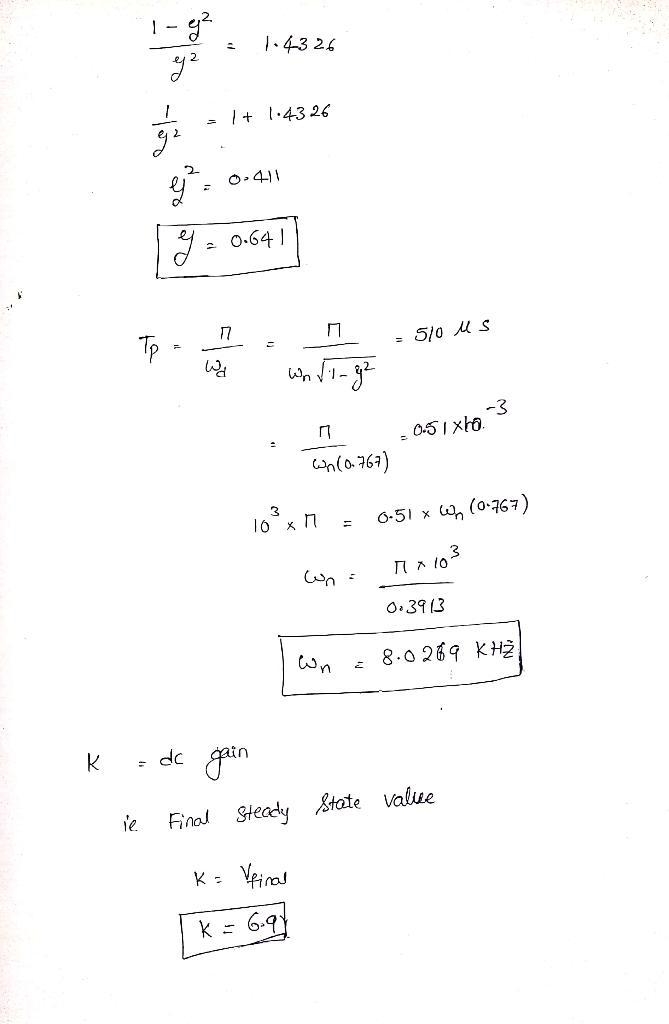 1 - ξ² / ξ² = 1.4326
1 / ξ² = 1 + 1.4326
ξ² = 0.411
ξ = 0.641
Tp = Π / ωd = Π / ωn √1-ξ² = 510 μs
= Π / ωn(0.767) = 0.51 × 10⁻³
10³ × Π = 0.51 × ωn (0.767)
ωn = Π × 10³ / 0.3913
ωn = 8.0269 KHz
K = dc gain
ie Final Steady State value
K = Vfinal
K = 6.9